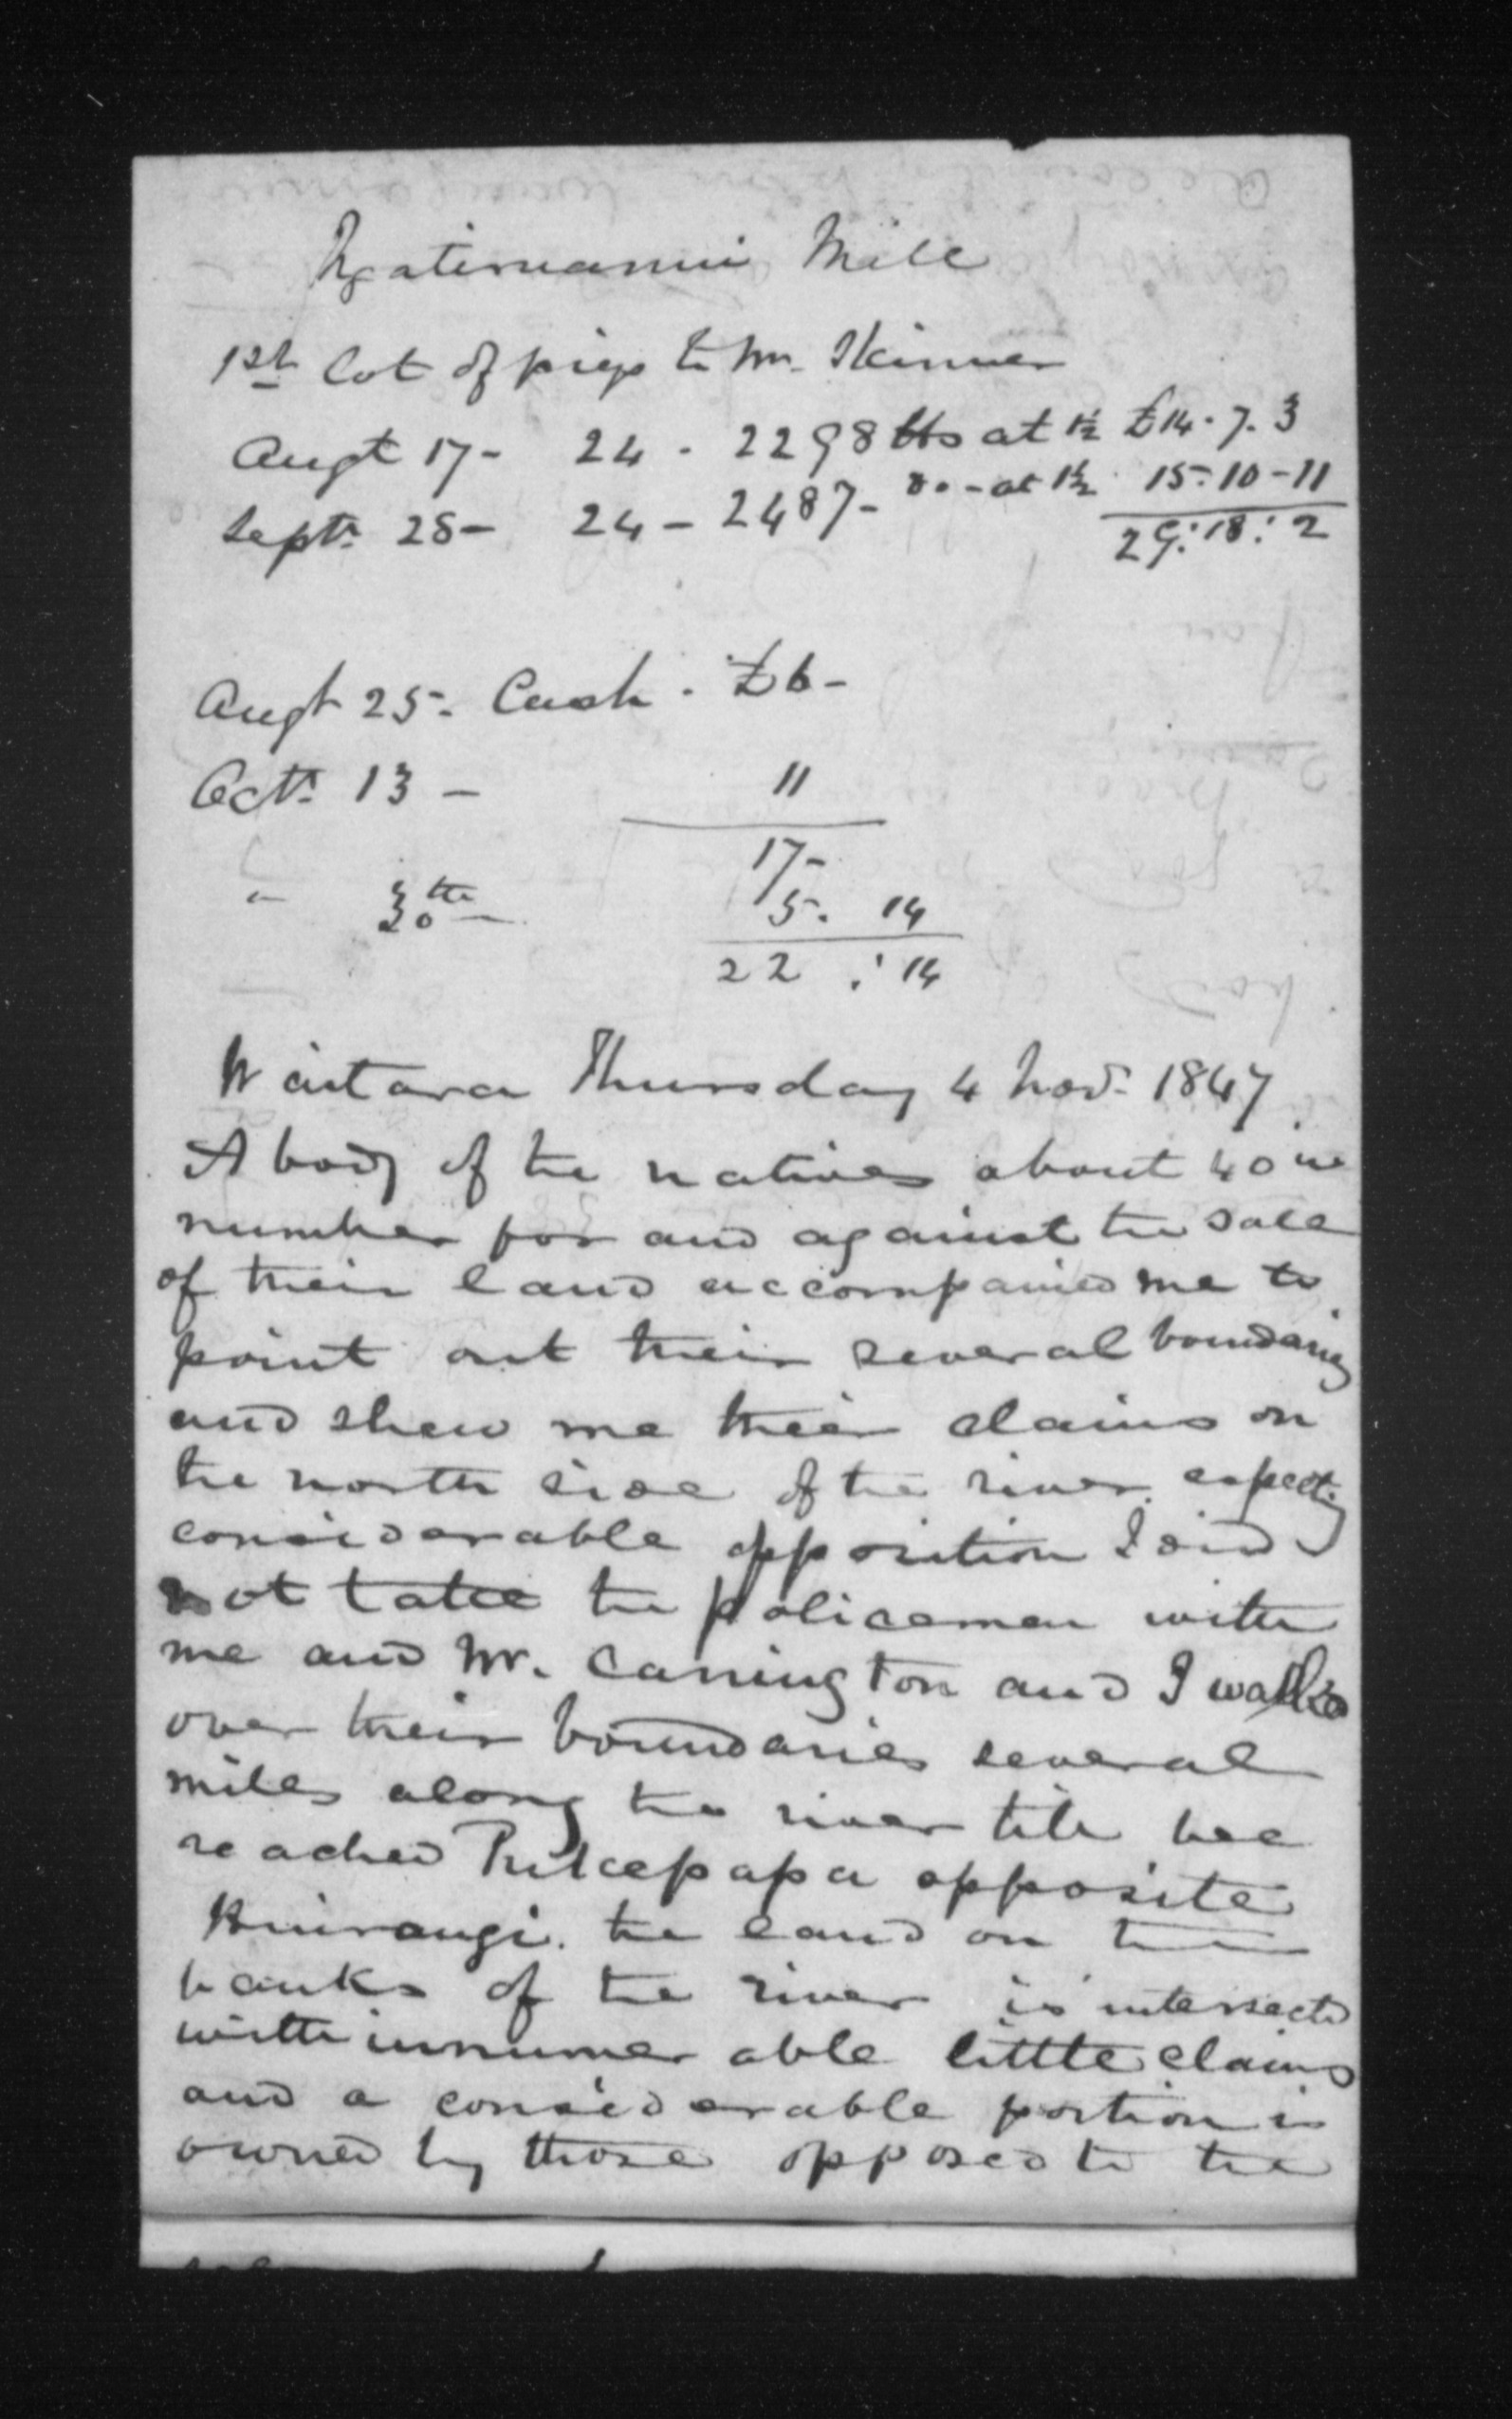 Ngatimaniu Mill
1st lot of pigs to Mr. Skinner
Augt 17 - 24 - 2298 lbs at 1½ £14. 7. 3
Septr 28 - 24 - 2487 - do - at 1½ 15. 10 - 11
29 : 18 : 2
Augt 25. Cash. £6 -
Octr 13 - 11
17 -
" 30th 5. 14
22 : 14
Waitara Thursday 4 Novr 1847
A body of the natives about 40 in
number for and against the sale
of their land accompanied me to
point out their several boundaries
and shew me their claims on
the north side of the river. expecting
considerable opposition I did
not take the policemen with
me and Mr. Carrington and I walked
over their boundaries several
miles along the river till we
reached Pukepapa opposite
Huirangi. the land on the
banks of the river is intersected
with innumerable little claims
and a considerable portion is
owned by those opposed to the